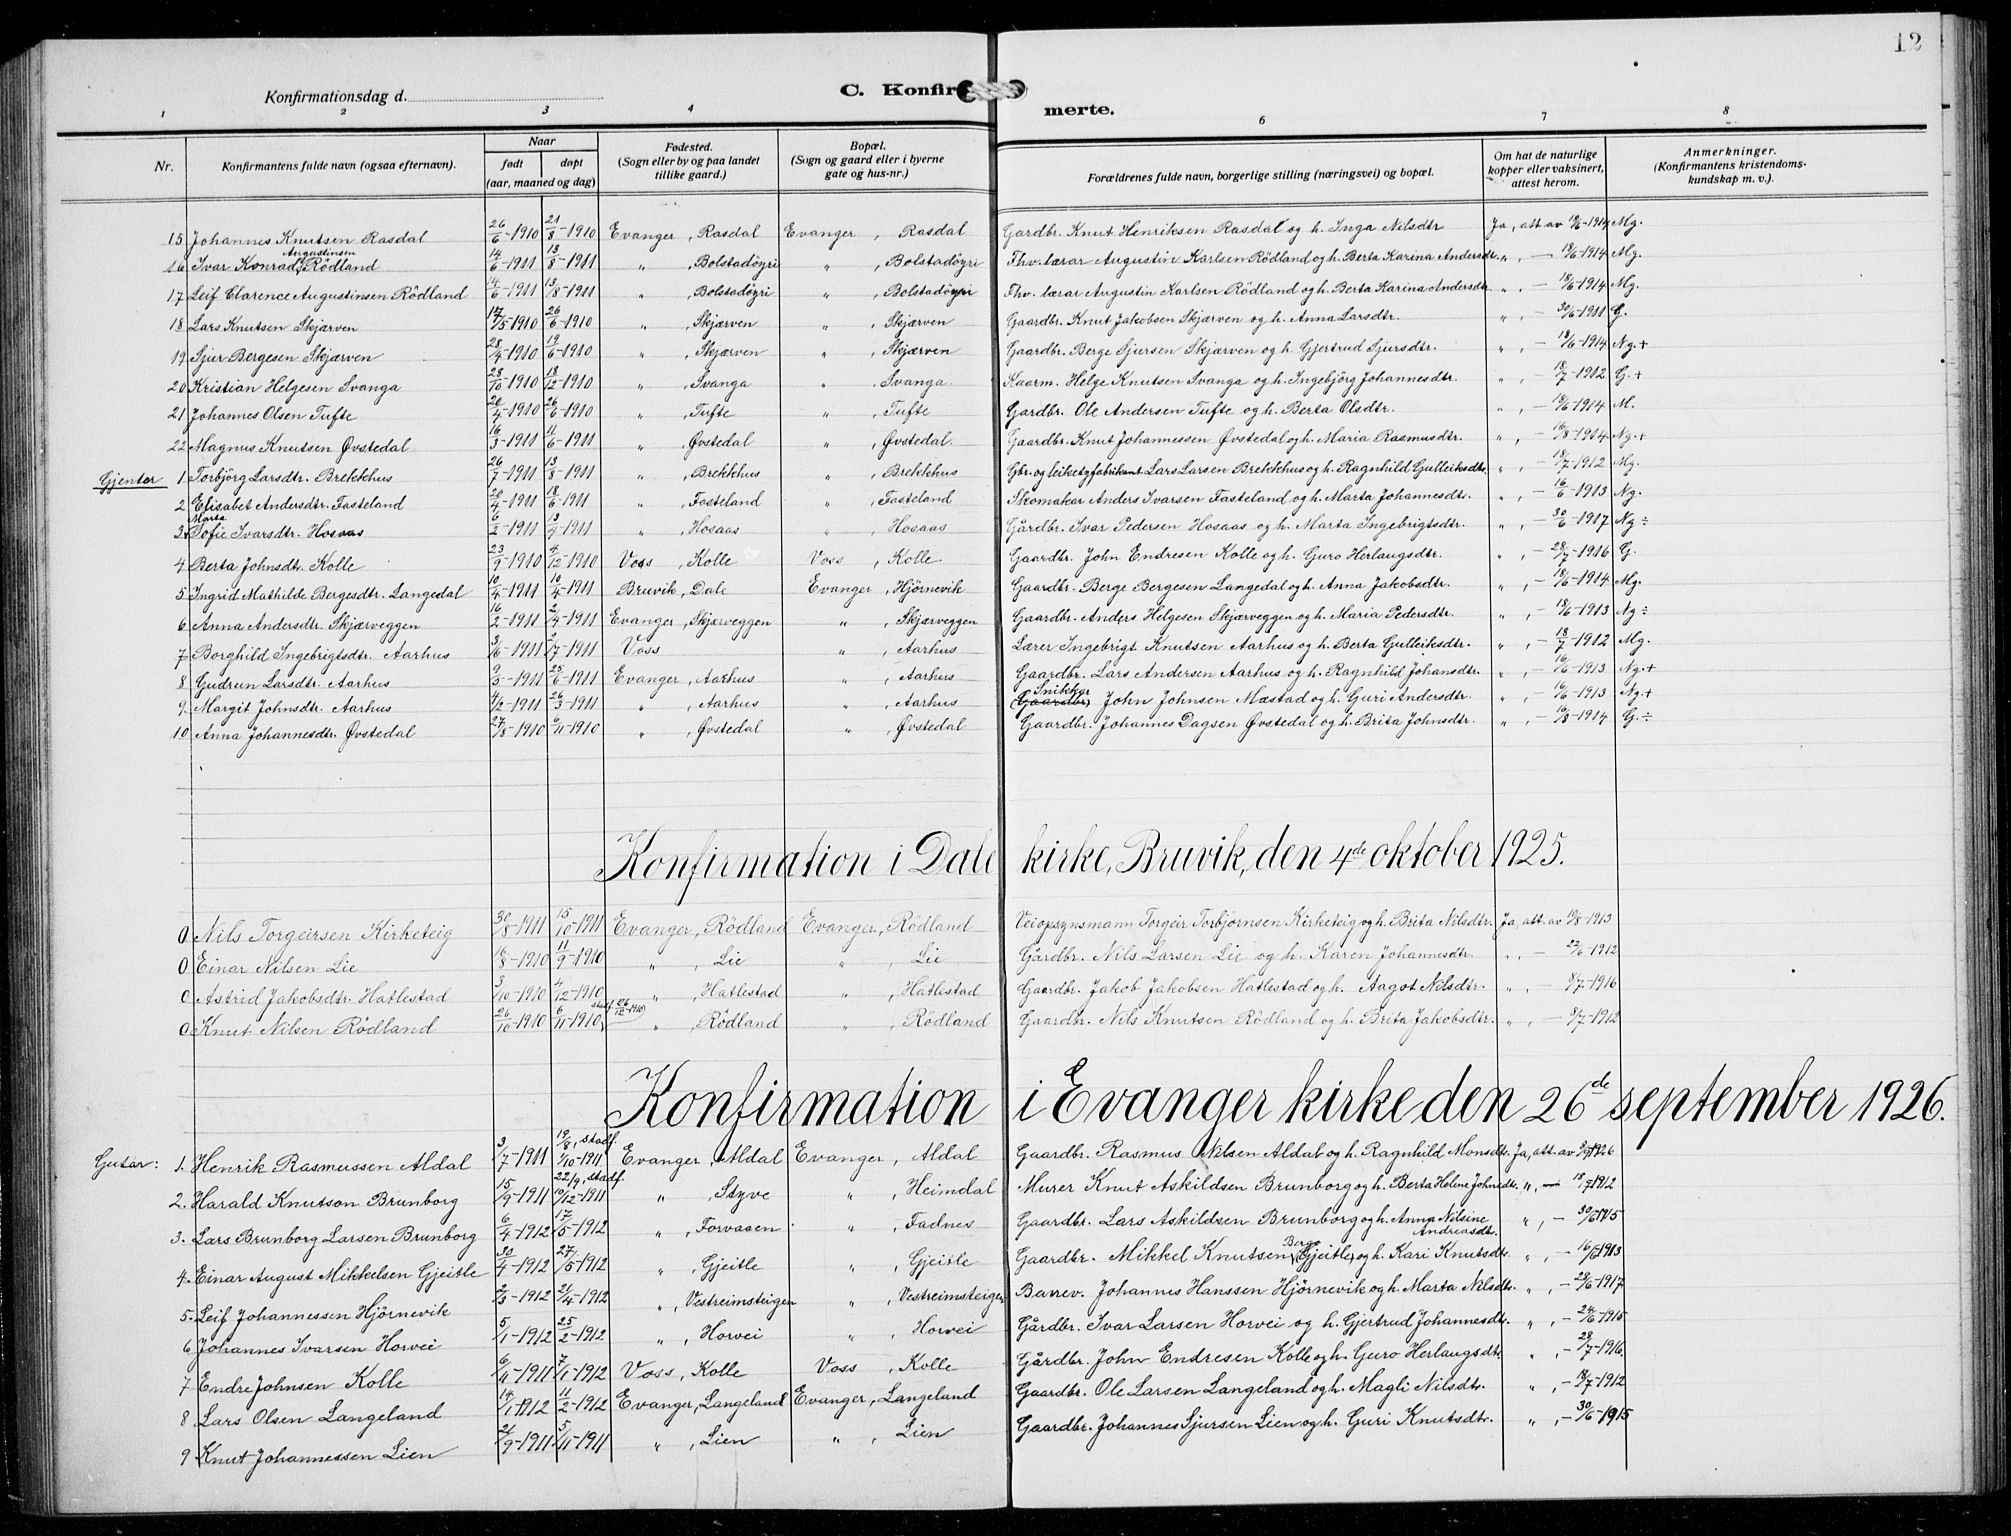 12
Konfirmationsdag d.
C. Konfirmerte.
1 2 3 4 6 7 8
Nr. | Konfirmantens fulde navn (ogsaa efternavn). | Naar født | døpt (aar, maaned og dag) | Fødested. (Sogn eller by og paa landet tillike gaard.) | Bopæl. (Sogn og gaard eller i byerne gate og hus-nr.) | Forældrenes fulde navn, borgerlige stilling (næringsvei) og bopæl. | Om hat de naturlige kopper eller vaksinert, attest herom. | Anmerkninger. (Konfirmantens kristendomskundskap m. v.).
15 Johannes Knutsen Rasdal 26/6-1910 21/8-1910 Evanger, Rasdal Evanger, Rasdal Gardbr. Knut Henriksen Rasdal og h. Inga Nilsdtr Ja, att av 18/6-1914 Mg.
16 Ivar Konrad Augustinsen Rödland 14/6-1911 13/8-1911 „ , Bolstadöyri „ , Bolstadöyri Fhv. lærar Augustin Karlsen Rödland og h. Berta Karina Andersdtr. „ , — 18/6-1914 Mg.
17 Leif Clarence Augustinsen Rödland 14/6-1911 13/8-1911 „ , Bolstadöyri „ , Bolstadöyri Fhv. lærar Augustin Karlsen Rödland og h. Berta Karina Andersdtr. „ , — 18/6-1914 Mg.
18 Lars Knutsen Skjærven 17/5-1910 26/6-1910 „ , Skjærven „ , Skjærven Gaardbr. Knut Jakobsen Skjærven og h. Anna Larsdtr. „ , — 30/6-1911 G.
19 Sjur Bergesen Skjærven 28/4-1910 19/6-1910 „ , Skjærven „ , Skjærven Gaardbr. Berge Sjursen Skjærven og h. Gjertrud Sjursdtr. „ , — 18/6-1914 Ng.+
20 Kristian Helgesen Svanga 28/10-1910 18/12-1910 „ , Svanga „ , Svanga Kaarm. Helge Knutsen Svanga og h. Ingebjörg Johannesdtr. „ , — 18/7-1912 G.+
21 Johannes Olsen Tufte 20/4-1910 26/6-1910 „ , Tufte „ , Tufte Gardbr. Ole Andersen Tufte og h. Berta Olsdtr. „ , — 18/6-1914 M.
22 Magnus Knutsen Øvstedal 16/3-1911 11/6-1911 „ , Øvstedal „ , Øvstedal Gaardbr. Knut Johannessen Øvstedal og h. Maria Rasmusdtr. „ , — 16/8-1914 Ng.+
Gjentor 1 Torbjörg Larsdtr. Brekkhus 26/7-1911 13/8-1911 „ , Brekkhus „ , Brekkhus Gbr. og leiketyfabrikant Lars Larsen Brekkhus og h. Ragnhild Gulleiksdtr. „ , — 18/7-1912 Mg.
2 Elisabet Andersdtr. Fasteland 20/4-1911 18/6-1911 „ , Fasteland „ , Fasteland Skomakar Anders Ivarsen Fasteland og h. Marta Johannesdtr. „ , — 16/6-1913 Ng.
3 Marta Sofie Ivarsdtr. Hosaas 6/2-1911 13/4-1911 „ , Hosaas „ , Hosaas Gårdbr. Ivar Pedersen Hosaas og h. Marta Ingebrigtsdtr. „ , — 30/6-1917 Ng÷
4 Berta Johnsdtr. Kolle 23/9-1910 4/12-1910 Voss, Kolle Voss, Kolle Gaardbr. John Endresen Kolle og h. Guro Herlaugsdtr. „ , — 28/7-1916 G.
5 Ingrid Mathilde Bergesdtr. Langedal 10/4-1911 16/4-1911 Bruvik, Dale Evanger, Hjörnevik Gaardbr. Berge Bergesen Langedal og h. Anna Jakobsdtr. „ , — 18/6-1914 Mg.
6 Anna Andersdtr. Skjærveggen 16/2-1911 2/4-1911 Evanger, Skjærveggen „ , Skjærveggen Gaardbr. Anders Helgesen Skjærveggen og h. Maria Pedersdtr. „ , — 18/6-1913 Ng÷
7 Borghild Ingebrigtsdtr. Aarhus 3/6-1911 2/7-1911 Voss „ , Aarhus Lærer Ingebrigt Knutsen Aarhus og h. Berta Gulleiksdtr. „ , — 18/7-1912 Mg.
8 Gudrun Larsdtr. Aarhus 9/3-1911 25/6-1911 Evanger, Aarhus „ , Aarhus Gaardbr. Lars Andersen Aarhus og h. Ragnhild Johansdtr. „ , — 16/6-1913 Ng.+
9 Margit Johnsdtr. Aarhus 4/2-1911 26/3-1911 „ , Aarhus „ , Aarhus (Gaardbr) Snikkar John Johnsen Mæstad og h. Guri Andersdtr. „ , — 16/6-1913 Ng.+
10 Anna Johannesdtr. Øvstedal 27/8-1910 6/11-1910 „ , Øvstedal „ , Øvstedal Gaardbr. Johannes Dagsen Øvstedal og h. Brita Johnsdtr. „ , — 16/8-1914 G.÷
Konfirmation i Dale kirke, Bruvik, den 4de oktober 1925.
0 Nils Torgeirsen Kirketeig 30/8-1911 15/10-1911 Evanger, Rödland Evanger, Rödland Veiopsynsmann Torgeir Torbjörnsen Kirketeig og h. Brita Nilsdtr. Ja, att. av 19/8-1913
0 Einar Nilsen Lie 16/8-1910 11/9-1910 „ , Lie „ , Lie Gårdbr. Nils Larsen Lie og h. Karen Johannesdtr. „ , — 22/6-1912
0 Astrid Jakobsdtr. Hatlestad 3/10-1910 4/12-1910 „ , Hatlestad „ , Hatlestad Gaardbr. Jakob Jakobsen Hatlestad og h. Aagot Nilsdtr. „ , — 8/7-1916
0 Knut Nilsen Rödland 26/10-1910 6/11-1910, stadf. 26/12-1910) „ , Rödland „ , Rödland Gaardbr. Nils Knutsen Rödland og h. Brita Jakobsdtr. „ , — 8/7-1912
Konfirmation i Evanger kirke den 26de september 1926.
Gutar: 1. Henrik Rasmussen Aldal 3/7-1911 19/8, stadf. 1/10-1911 Evanger, Aldal Evanger, Aldal Gaardbr. Rasmus Nilsen Aldal og h. Ragnhild Monsdtr. Ja, att. av 8/9-1926
2. Harald Knutson Brunborg 15/9-1911 22/9, stadf. 10/12-1911 „ , Styve „ , Heimdal Murer Knut Askildsen Brunborg og h. Berta Helene Johnsdtr. „ , — 18/7-1912
3. Lars Brunborg Larsen Brunborg 6/4-1912 17/5-1912 „ , Forvaaen „ , Fadnes Gaardbr. Lars Askildsen Brunborg og h. Anna Nilsine Andreasdtr. „ , — 30/6-1915
4. Einar August Mikkelsen Gjeitle 30/4-1912 27/5-1912 „ , Gjeitle „ , Gjeitle Gaardbr. Mikkel Knutsen Berge (Gjeitle) og h. Kari Knutsdtr. „ , — 16/6-1913
5. Leif Johannessen Hjörnevik 2/3-1912 21/4-1912 „ , Vestreimsteigen „ , Vestreimsteigen Banev. Johannes Hanssen Hjörnevik og h. Marta Nilsdtr. „ , — 28/6-1917
6 Johannes Ivarsen Horvei 5/1-1912 25/2-1912 „ , Horvei „ , Horvei Gårdbr. Ivar Larsen Horvei og h. Gjertrud Johannesdtr. „ , — 24/6-1915
7 Endre Johnsen Kolle 6/11-1911 7/1-1912 Voss, Kolle Voss, Kolle Gårdbr. John Endresen Kolle og h. Guro Herlaugsdtr. „ , — 28/7-1916
8 Lars Olsen Langeland 14/1-1912 11/2-1912 Evanger, Langeland Evanger, Langeland Gaardbr. Ole Larsen Langeland og h. Magli Nilsdtr. „ , — 18/7-1912
9 Knut Johannessen Lien 21/9-1911 5/11-1911 „ , Lien „ , Lien Gaardbr. Johannes Sjursen Lien og h. Guri Knutsdtr. „ , — 30/6-1915